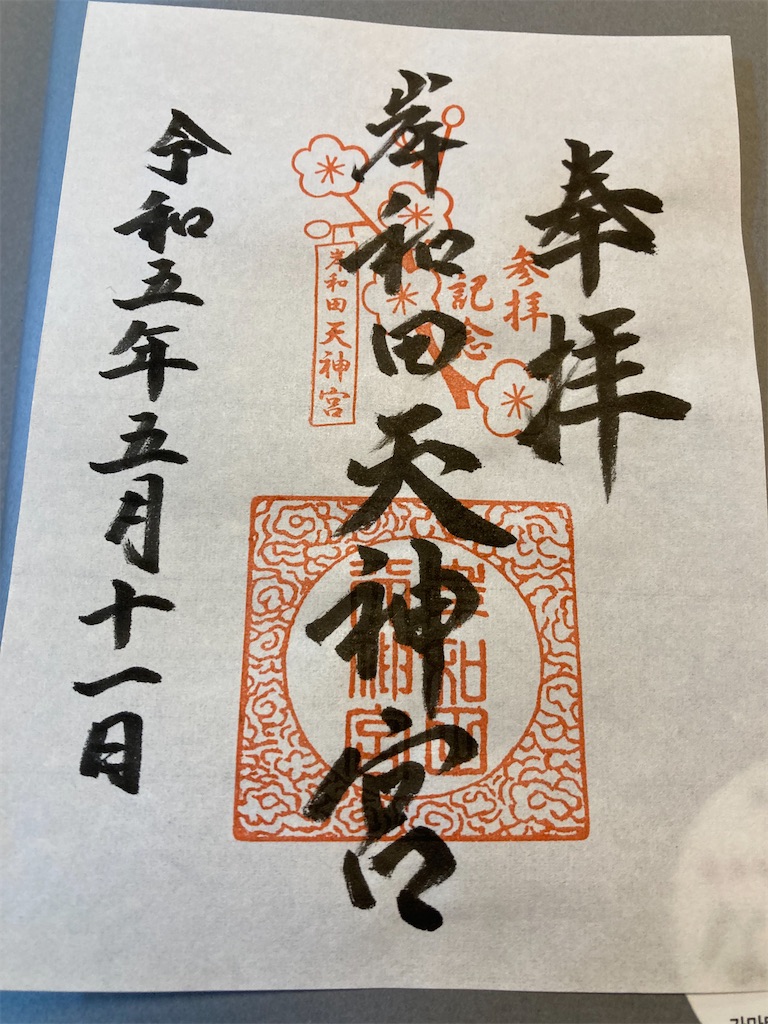 奉拝
参拝
記念
岸和田天神宮
岸和田天神宮
岸和田
天神宮
令和五年五月十一日